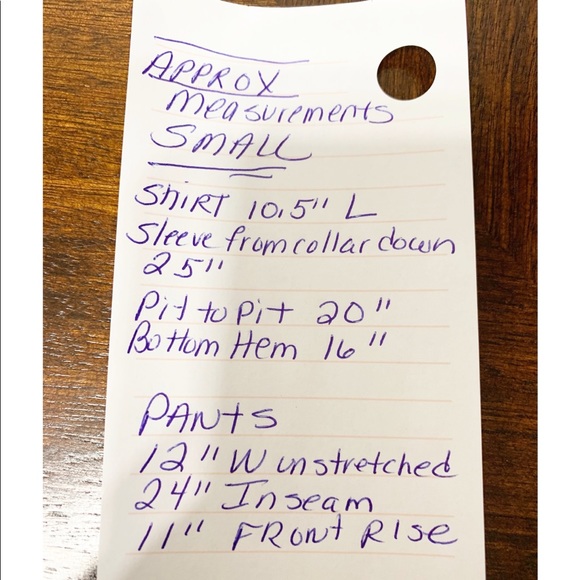 APPROX
measurements
SMALL
SHIRT 10.5" L
Sleeve from collar down
25"
Pit to Pit 20"
Bottom Hem 16"
PANTS
12" W unstretched
24" Inseam
11" FRONT RISE